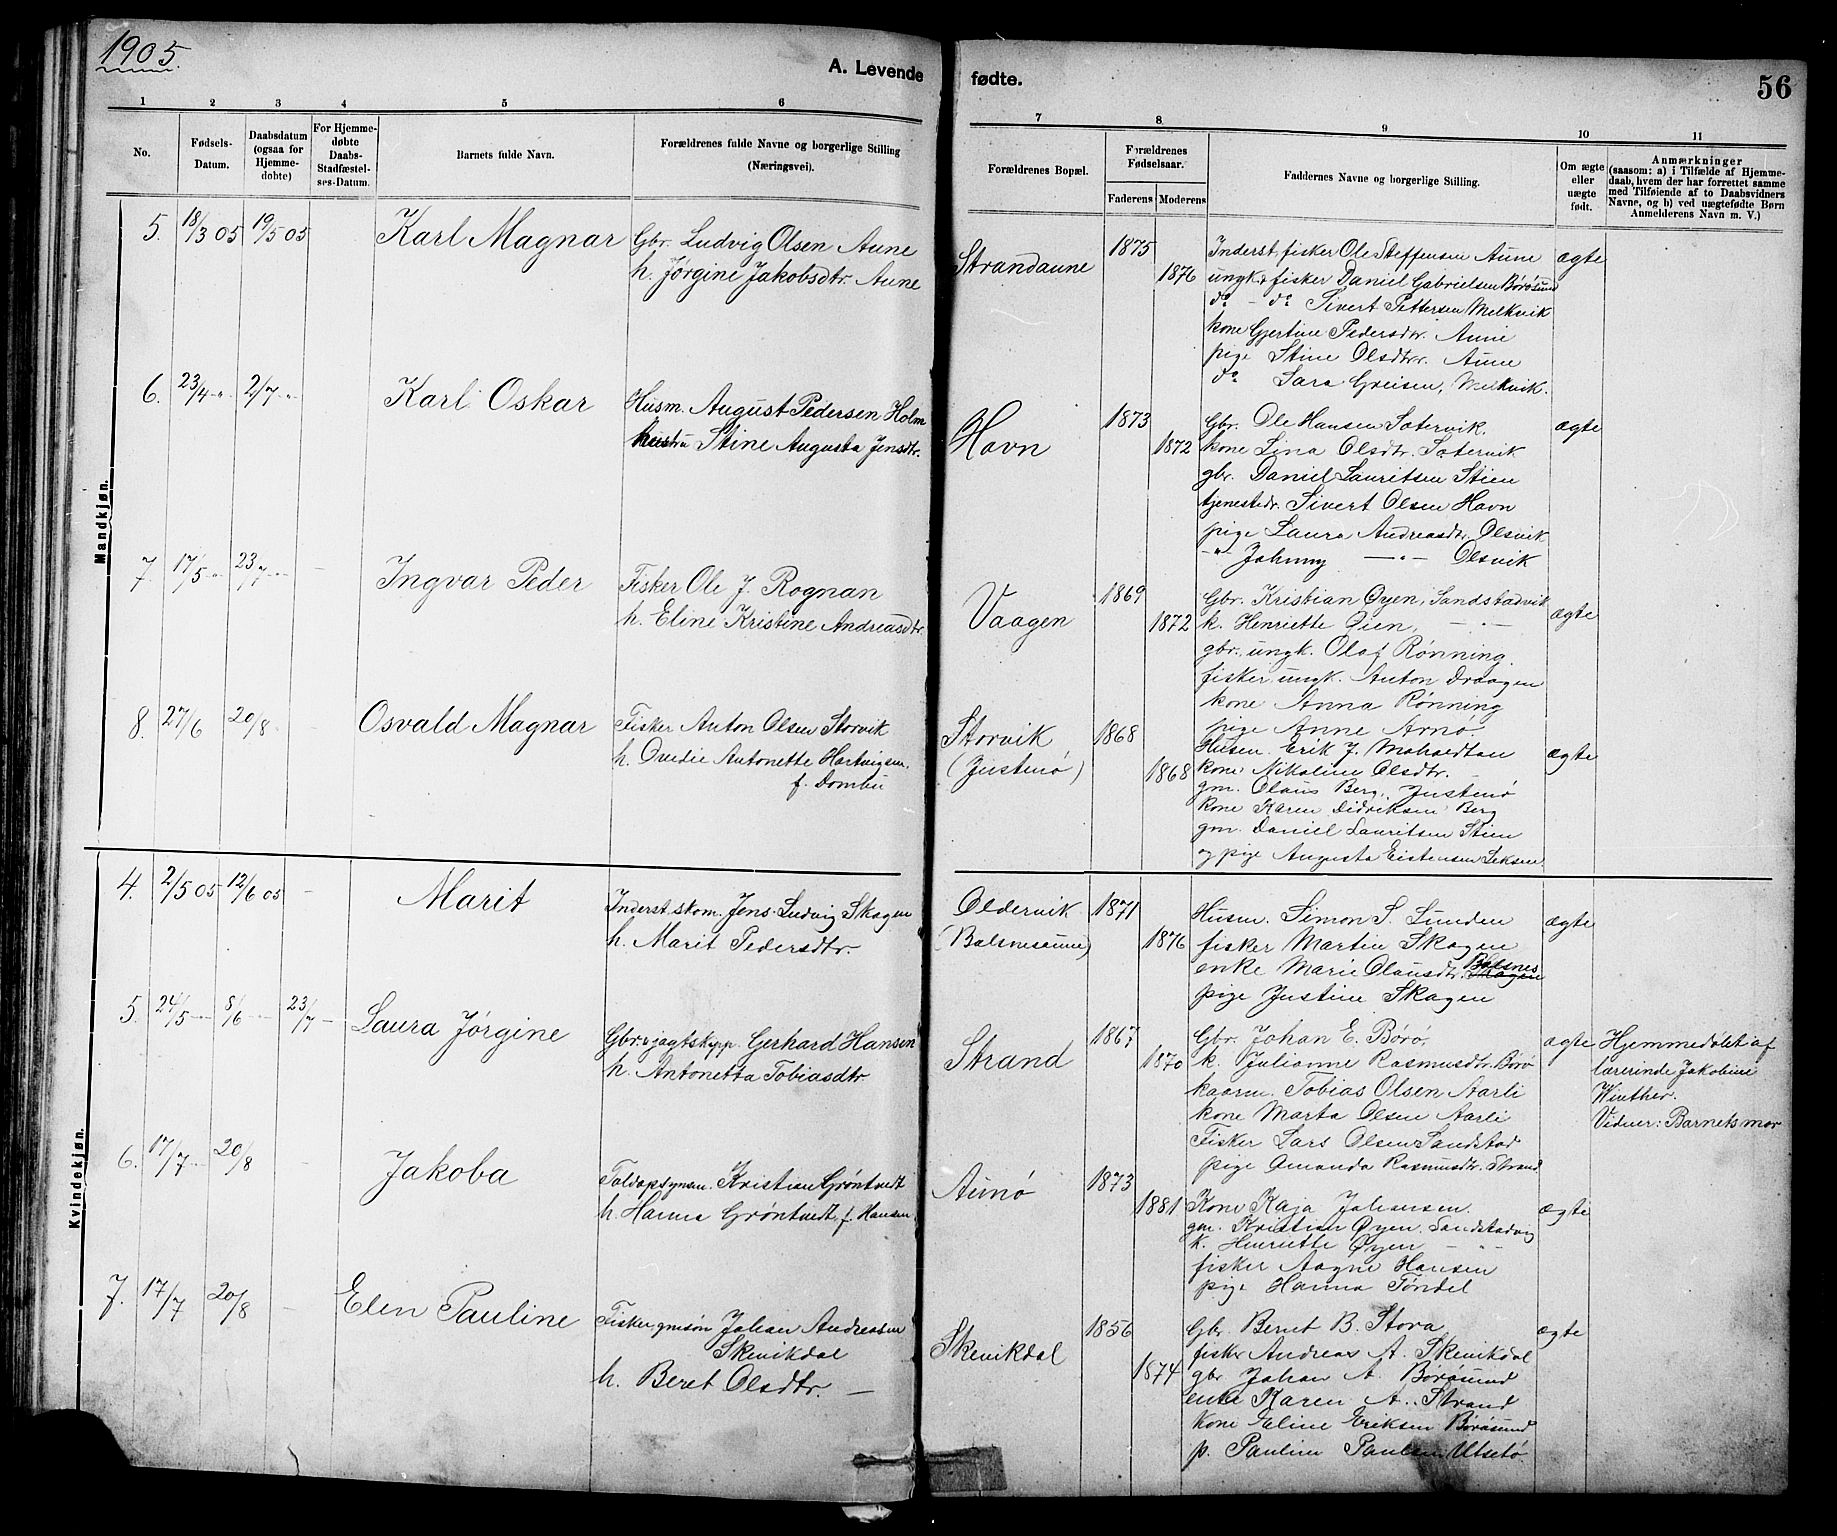 1905.
A. Levende fødte.
56
1 2 3 4 5 6 7 8 9 10 11
No.
Fødsels-
Datum.
Daabsdatum
(ogsaa for
Hjemme-
døbte)
For Hjemme-
døbte
Daabs-
Stadfæstel-
ses-Datum.
Barnets fulde Navn.
Forældrenes fulde Navne og borgerlige Stilling
(Næringsvei).
Forældrenes Bopæl.
Forældrenes
Fødselsaar.
Faderens Moderens
Faddernes Navne og borgerlige Stilling.
Om ægte
eller
uægte
født.
Anmærkninger
(saasom: a) i Tilfælde af Hjemme-
daab, hvem der har forrettet samme
med Tilføiende af to Daabsvidners
Navne, og b) ved uægtefødte Børn
Anmelderens Navn m. V.)
Mandkjøn.
5. 18/3 05 19/5 05 Karl Magnar
Gbr. Ludvig Olsen Aune
h. Jørgine Jakobsdtr. Aune
Strandaune
1875
1876
Inderst, fisker Ole Steffensen Aune
ungk. fisker Daniel Gabrielsen Børøsund
do - do Sivert Pettersen Melkvik
kone Gjertine Pedersdtr. Aune
pige Stine Olsdtr. Aune
do Sara Greisen, Melkvik.
ægte
6. 23/4 -"- 2/7 -"- Karl Oskar
Husm. August Pedersen Holm
hustru Stine Augusta Jensdtr.
Havn
1873
1872
Gbr. Ole Hansen Sætervik.
kone Lina Olsdtr. Sætervik
gbr. Daniel Lauritsen Stien
tjenestedr. Sivert Olsen Havn
pige Laura Andreasdtr. Olsvik
-"- Johnny -"- Olsvik
ægte
7. 17/5 -"- 23/7 -"- - Ingvar Peder
Fisker Ole J. Rognan
h. Eline Kristine Andreasdtr.
Vaagen
1869
1872
Gbr. Kristian Øyen, Sandstadvik
k. Henriette Øien, -"-
gbr. ungk. Olaf Rønning.
fisker ungk. Anton Draagen
kone Anna Rønning
pige Anne Arnø.
ægte
8. 27/6 20/8 - Osvald Magnar
Fisker Anton Olsen Storvik
h. Ovedie Antonette Hartvigsen.
f. Dombu
Storvik
(Jøstenø)
1868
1868
Husm. Erik J.
kone Nikoline Olsdtr.
gm. Olaus Berg, Jøstenø
kone Karen Didriksen Berg
gm. Daniel Lauritsen Stien
og pige Augusta Eistensen
ægte
Kvindekjøn.
4. 2/5 05 12/6 05 - Marit
Inderst skom. Jens Ludvig Skagen
h. Marit Pedersdtr.
Oldervik
(Balsnesaune)
1871
1876
Husm. Simon S. Lunden
fisker Martin Skagen
enke Marie Olausdtr. Balsnes
pige Justine Skagen
ægte
5. 24/5 - 8/6 - 23/7 - Laura Jørgine
Gbr. jagtskipp. Gerhard Hansen
h. Antonetta Tobiasdtr
Strand
1867
1870
Gbr. Johan E. Børø.
k. Julianne Rasmusdtr. Børø
kaarm. Tobias Olsen Aarli
kone Marta Olsen Aarli
Fisker Lars Olsen Sandstad
pige Amanda Rasmusdtr. Strand
ægte
Hjemmedøbt af
lærerinde Jakobine
Winther.
Vidner: Barnets mor
6. 17/7 - 20/8 - Jakoba
Toldopsynsm. Kristian Grøntvedt
h. Hanna Grøntvedt, f. Hansen
Aunø
1873
1881
Kone Kaja Johansen.
gm. Kristian Øyen, Sandstadvig
k. Henriette Øyen -"-
fisker Aagne Hansen
pige Hanna Tøndel
ægte
7. 17/7 20/8 - Elen Pauline
Fisker gmsøn Johan Andreassen
Skevikdal
h. Beret Olsdtr. -
Skevikdal
1856
1874
Gbr. Bernt B. Stora
fisker Andreas A. Skevikdal
gbr Johan A. Børøsund
enke Karen A. Strand
kone Eline Eriksen Børøsund
p. Pauline Paulsen Utsetø
ægte